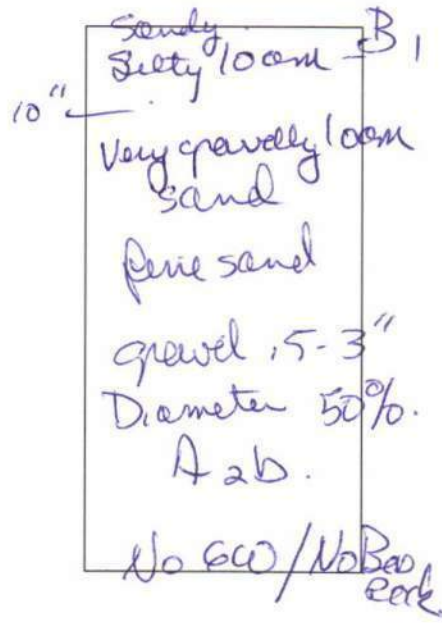 Sandy
Silty loam - B1
10"
Very gravelly loam
sand
fine sand
gravel .5-3"
Diameter 50%.
A2b.
No GW/No Bed
Rock